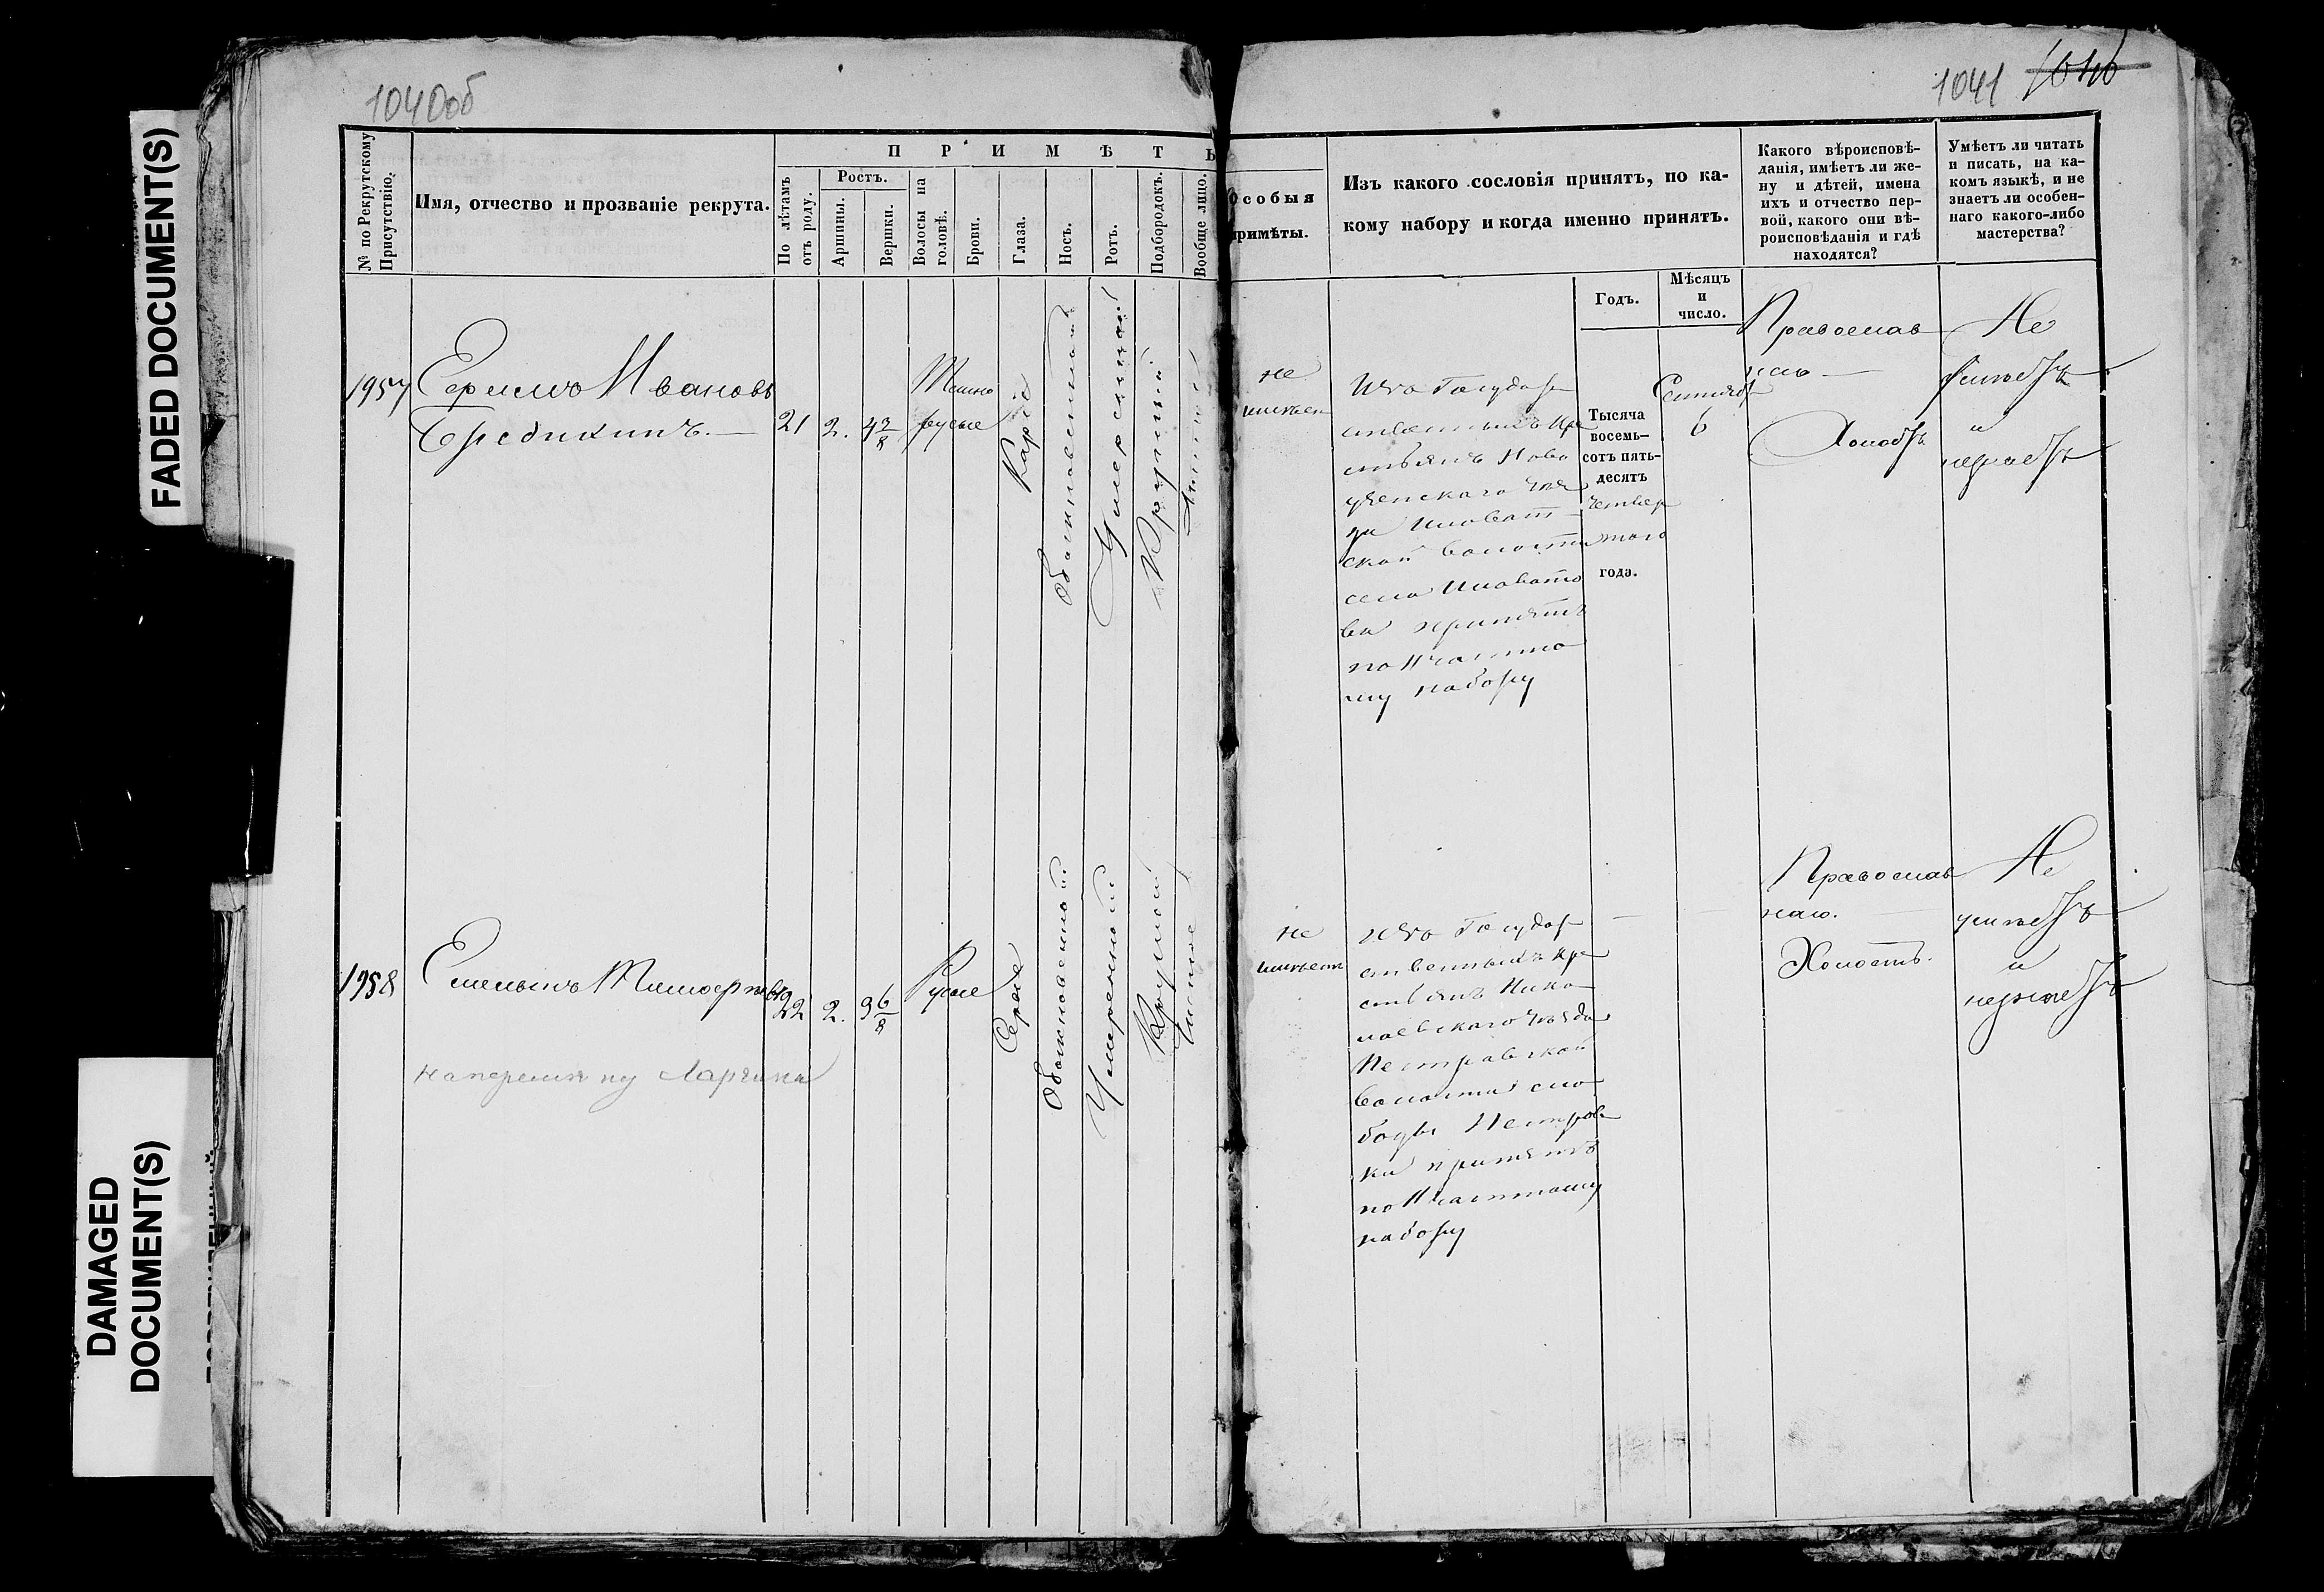 FADED DOCUMENT(S)
DAMAGED
DOCUMENT(S)
1040об
1041
№ по Рекрутскому
Присутствію.
Имя, отчество и прозваніе рекрута.
ПРИМѢТЫ
По лѣтамъ
отъ роду.
Ростъ.
Аршины.
Вершки.
Волосы на
головѣ.
Брови.
Глаза.
Носъ.
Ротъ.
Подбородокъ.
Вообще лицо.
Особыя
примѣты.
Изъ какого сословія принятъ, по ка-
кому набору и когда именно принятъ.
Годъ.
Мѣсяцъ
и
число.
Какого вѣроисповѣ-
данія, имѣетъ ли же-
ну и дѣтей, имена
ихъ и отчество пер-
вой, какого они вѣ-
роисповѣданія и гдѣ
находятся?
Умѣетъ ли читать
и писать, на ка-
комъ языкѣ, и не
знаетъ ли особен-
наго какого-либо
мастерства?
1957
Ивановъ
21
2.
4 2/8
Темно
русые
Каріе
Обыкновенный
Умеренный
Круглый
не
имѣет
Изъ Государ
ственныхъ Кре
стьянъ Ново
узенскаго уѣз
да Иловат
ской волости
села Иловато
вки принятъ
по II частно
му набору
Тысяча
восемь-
сотъ пять-
десятъ
четвер
таго
года.
Сентябр
6
Православ
наго
Холостъ
Не
умѣетъ
и
1958
Емельянъ Тимофѣевъ
22
2.
3 6/8
Русые
Серые
Обыкновенный
Умеренный
Круглой
Чистое
на перемену Ларгина
не
имѣетъ
Изъ Государ
ственныхъ Кре
стьянъ Нико
лаевскаго Уѣзда
Пестравской
волости сло
боды Пестрав
ки принятъ
по II частному
набору
Православ
наго.
Холостъ.
Не
умѣетъ
и